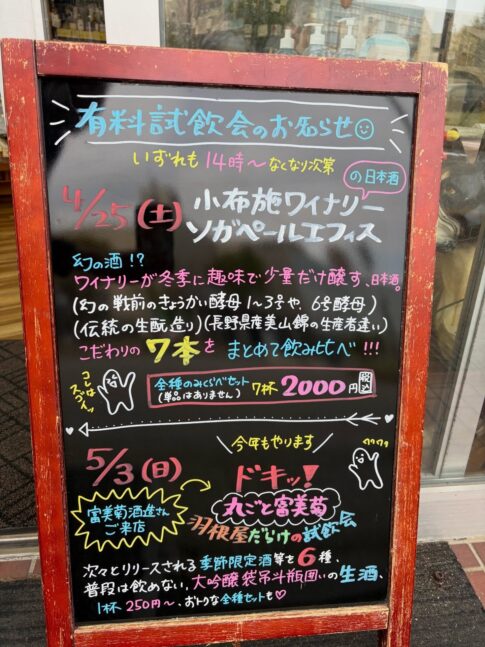 有料試飲会のお知らせ
いずれも14時〜なくなり次第
の日本酒
4/25(土) 小布施ワイナリー
ソガペールエフィス
幻の酒!?
ワイナリーが冬季に趣味で少量だけ醸す、日本酒。
(幻の戦前のきょうかい酵母1〜3号や、6号酵母)
(伝統の生酛造り)(長野県産美山錦の生産者違い)
こだわりの7本を まとめて飲み比べ!!!
コレはスゴイッ
全種のみくらべセット
(単品はありません) 7杯2000円税込
今年もやります
5/3(日) ドキッ!
丸ごと富美菊
羽根屋だらけの試飲会
富美菊酒造さん
ご来店
次々とリリースされる季節限定酒等を6種、
普段は飲めない、大吟醸袋吊斗瓶囲いの生酒、
1杯250円〜、おトクな全種セットも♡